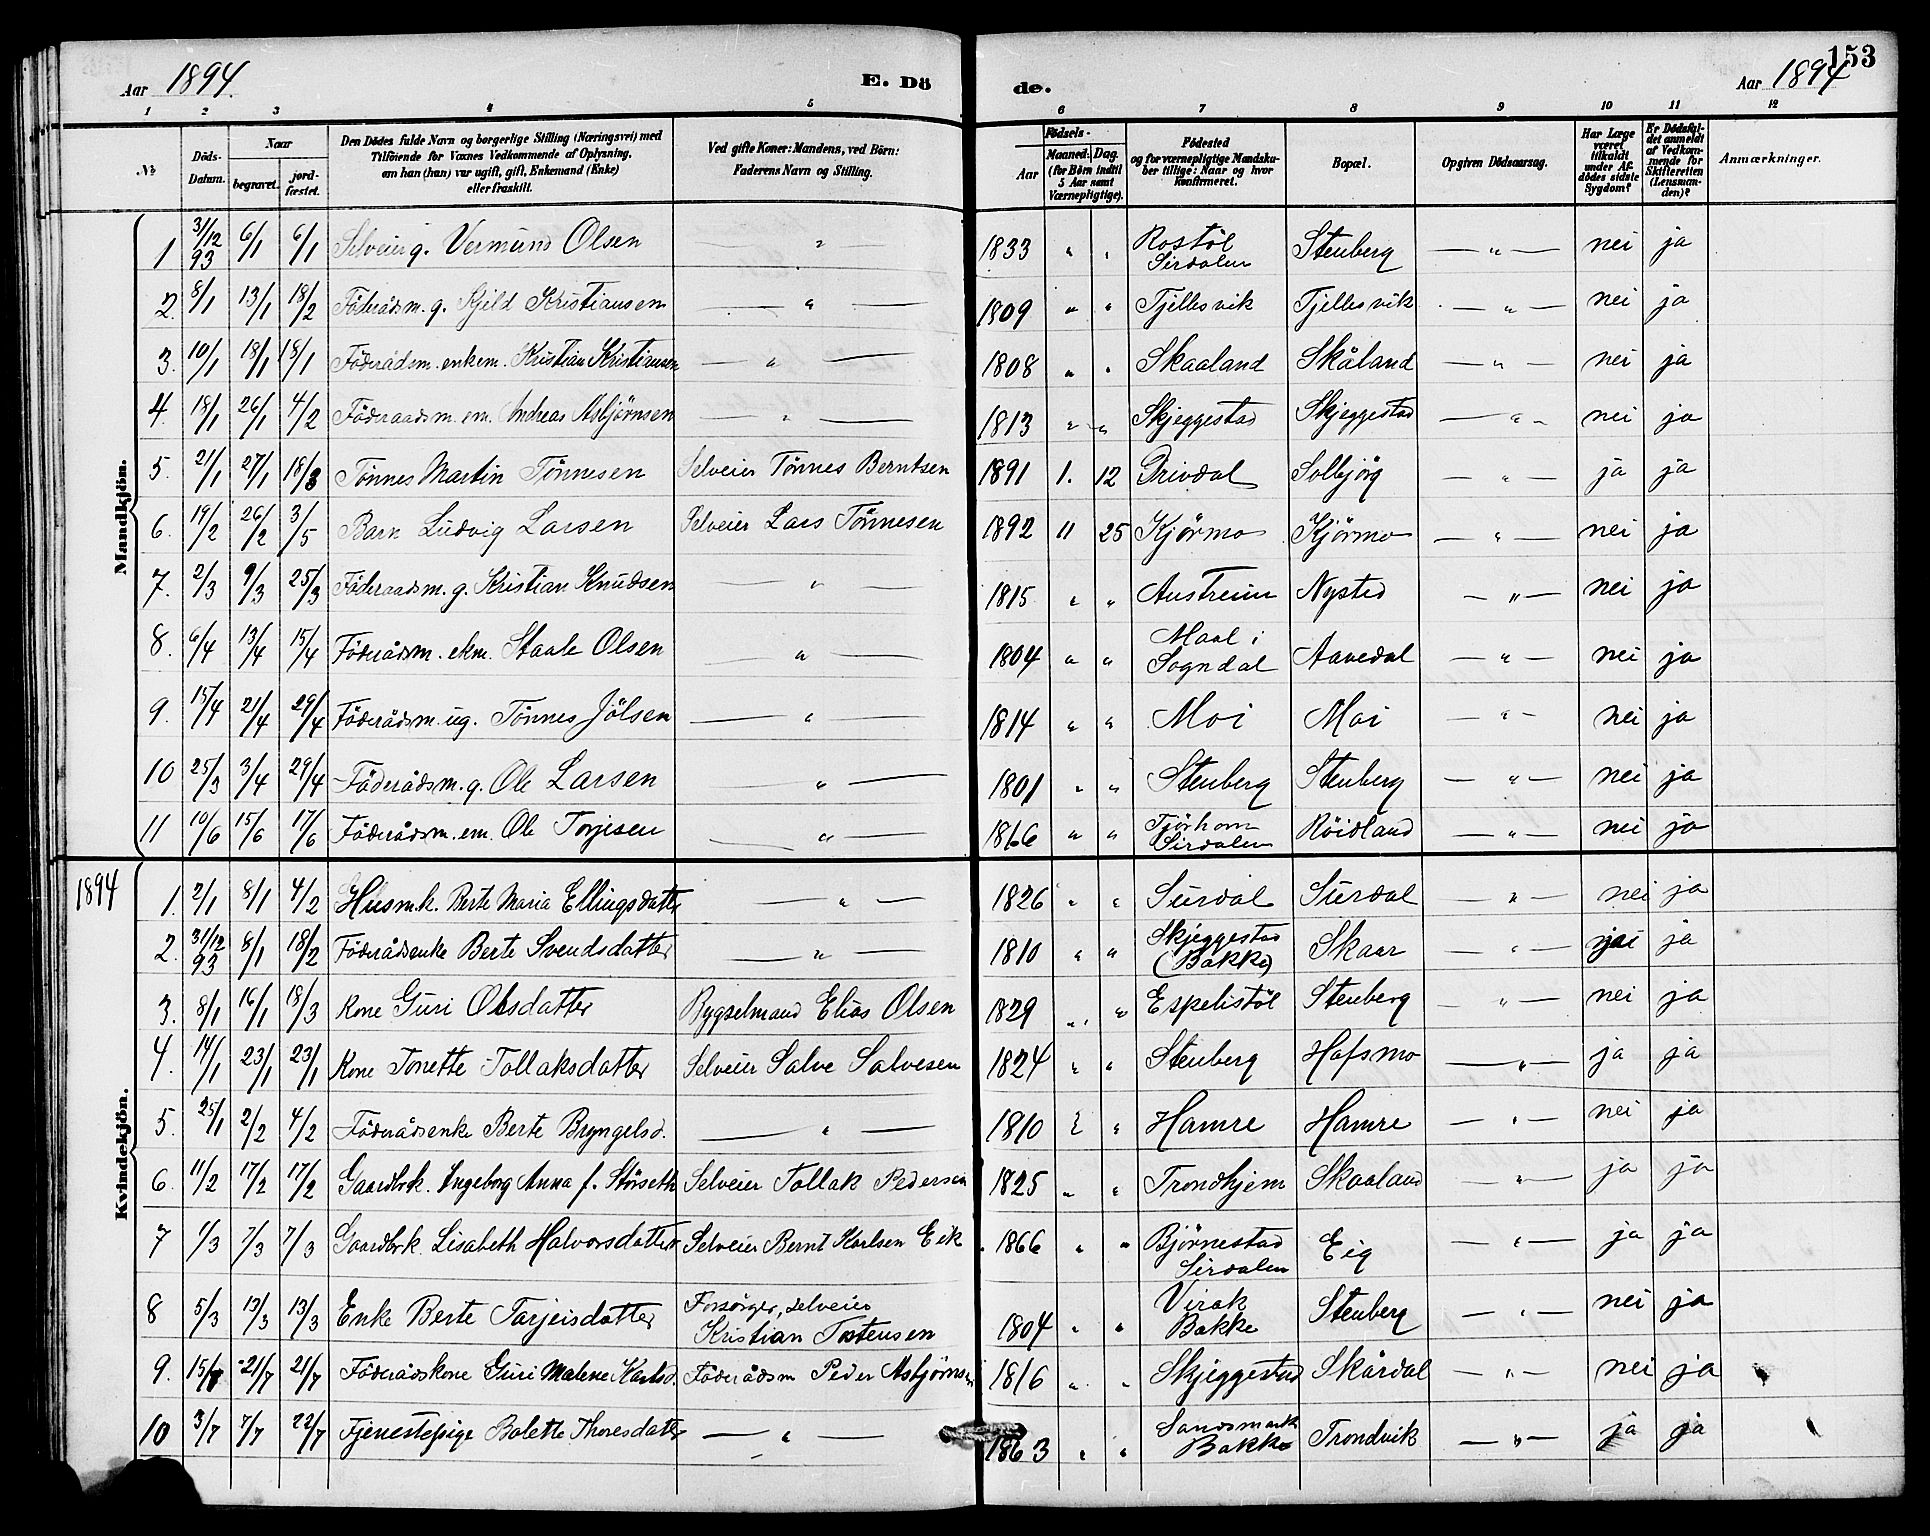 153
Aar 1894. E. Dö de. Aar 1894
1 2 3 4 5 6 7 8 9 10 11 12
№ Döds-Datum. Naar begravet. jordfæstet. Den Dödes fulde Navn og borgerlige Stilling (Næringsvei) med Tilföiende for Vøxnes Vedkommende af Oplysning, om han (hun) var ugift, gift, Enkemand (Enke) eller fraskilt. Ved gifte Koner: Mandens, ved Börn: Faderens Navn og Stilling. Födsels- Aar Maaned: Dag. (for Börn indtil 5 Aar samt Værnepligtige). Födested og for værnepligtige Mandskaber tillige: Naar og hvor konfirmeret. Bopæl. Opgiven Dödsaarsag. Har Læge været tilkaldt under Afdödes sidste Sygdom? Er Dödsfaldet anmeldt af Vedkommende for Skifteretten (Lensmanden)? Anmærkninger.
Mandkjön.
1 31/12 93 6/1 6/1 Selveier g. Vermund Olsen — " — 1833 " " Rostöl Sirdalen Stenberg — " — nei ja
2. 8/1 13/1 18/2 Föderådsm. g. Kjeld Kristiansen — " — 1809 " " Tjellesvik Tjellesvik — " — nei ja
3. 10/1 18/1 18/1 Föderådsm. enkem. Kristian Kristiansen — " — 1808 " " Skaaland Skåland — " — nei ja
4. 18/1 26/1 4/2 Föderaadsm. em. Andreas Asbjørnsen — " — 1813 " " Skjeggestad Skjeggestad — " — nei ja
5. 21/1 27/1 18/3 Tönnes Martin Tönnesen Selveier Tönnes Berntsen 1891 1. 12 Drivdal Solbjörg — " — ja ja
6. 19/2 26/2 3/5 Barn Ludvig Larsen Selveier Lars Tönnesen 1892 11 25 Kjörmo Kjörmo — " — nei ja
7. 2/3 9/3 25/3 Föderaadsm. g. Kristian Knudsen — " — 1815 " " Austreim Nysted — " — nei ja
8. 6/4 13/4 15/4 Föderådsm. ekm. Staale Olsen — " — 1804 " " Maal i Sogndal Aavedal — " — nei ja
9. 15/4 21/4 29/4 Föderådsm. ug. Tönnes Jölsen — " — 1814 " " Moi Moi — " — nei ja
10 25/3 3/4 29/4 Föderådsm. g. Ole Larsen — " — 1801 " " Stenberg Stenberg — " — nei ja
11 10/6 15/6 17/6 Föderådsm. em. Ole Torjesen — " — 1866 " " Tjörhom Sirdalen Röidland — " — nei ja
1894
Kvindekjön.
1. 2/1 8/1 4/2 Husm.k. Berte Maria Ellingsdatter — " — 1826 " " Surdal Surdal — " — nei ja
2. 31/12 93 8/1 18/2 Föderådsenke Berte Svendsdatter — " — 1810 " " Skjeggestad (Bakke) Skaar — " — ja
3. 8/1 16/1 18/3 Kone Guri Olsdatter Bygselmand Elias Olsen 1829 " " Espelistöl Stenberg — " — nei ja
4. 14/1 23/1 23/1 Kone Tonette Tollaksdatter Selveier Salve Salvesen 1824 " " Stenberg Hafsmo — " — ja ja
5. 25/1 2/2 4/2 Föderådsenke Berte Bryngelsd. — " — 1810 " " Hamre Hamre — " — nei ja
6. 11/2 17/2 17/2 Gaardbrk. Ingeborg Anna f. Störseth Selveier Tollak Pedersen 1825 " " Trondhjem Skaaland — " — ja ja
7 1/3 7/3 7/3 Gaardbrk. Lisabeth Halvorsdatter Selveier Bernt Karlsen Eik 1866 " " Bjørnestad Sirdalen Eig — " — ja ja
8 5/3 13/3 13/3 Enke Berte Tarjeisdatter Forsørger, selveier Kristian Tostensen 1804 " " Virak Bakke Stenberg — " — nei ja
9. 15/7 21/7 21/7 Föderådskone Guri Malene Karlsd. Föderådsm Peder Asbjørnsen 1816 " " Skjeggestad Skårdal — " — nei ja
10 3/7 7/7 22/7 Tjenestepige Bolette Thoresdatter — " — 1863 " " Sandsmark Bakke Trondvik — " — ja ja